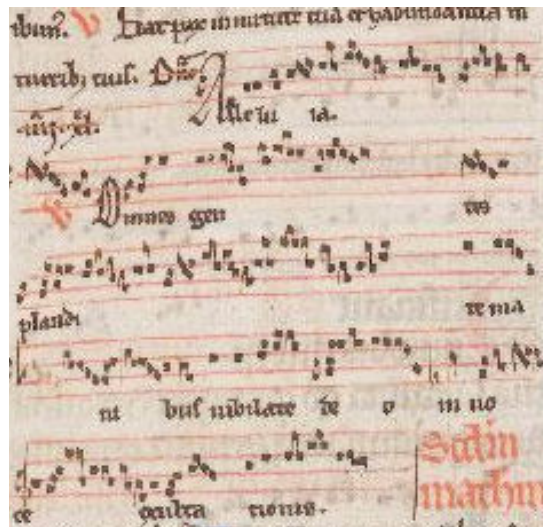 ibus. V Fiat pax in uirtute tua et habundantia in
turribus tuis. Dñica
.iiij. ct. Alleluia.
V Omnes gen tes
plaudi te ma
ni bus iubilate de o in uo
ce exulta tionis.